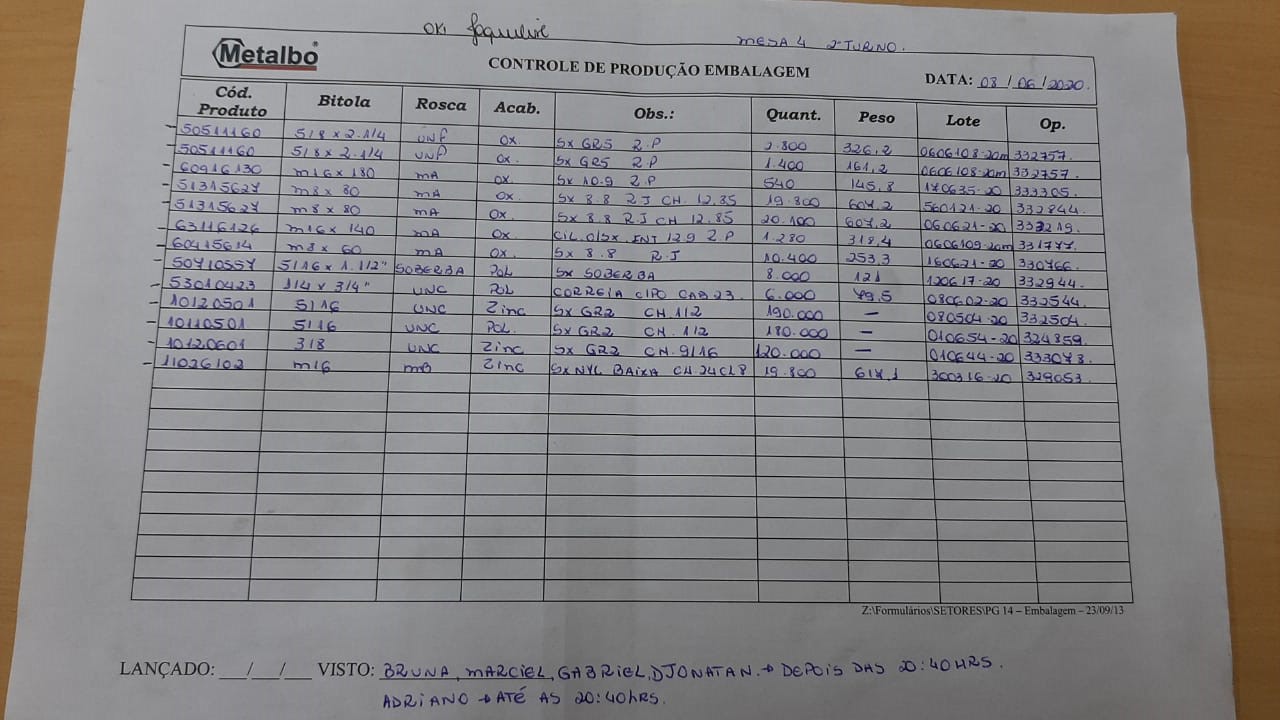 OK! Jaqueline MESA 4 2º TURNO.
Metalbo® CONTROLE DE PRODUÇÃO EMBALAGEM DATA: 08 / 06 / 2020.
Cód. Produto Bitola Rosca Acab. Obs.: Quant. Peso Lote Op.
50511160 5/8 x 2.1/4 UNF OX. SX GR5 2.P 2.800 326,2 0606108-20m 332757.
50511160 5/8 x 2.1/4 UNF OX. SX GR5 2P 1.400 161,2 0606108-20m 332757.
60916180 m16 x 180 mA OX. SX 10.9 2.P 540 145,8 170635-20 333305.
51315627 m8 x 80 mA OX. SX 8.8 RJ CH. 12.85 19.800 607,2 560121-20 332844.
51315627 m8 x 80 mA OX. SX 8.8 RJ CH 12.85 20.100 607,2 060621-20 333219.
63116126 m16 x 140 mA OX CIL. O/SX. INT 12.9 2.P 1.280 318,4 0606109-20m 331777.
60415614 m8 x 60 mA OX. SX 8.8 R.J 10.400 253,3 160621-20 330766.
50710557 5/16 x 1.1/2" SOBERBA POL SX SOBERBA 8.000 121 120617-20 332944.
53010423 1/4 x 3/4" UNC POL CORREIA CIPO CAB 23. 6.000 79,5 080602-20 332544.
10120501 5/16 UNC Zinc SX GR2 CH 1/2 190.000 — 080504-20 332504.
10110501 5/16 UNC POL. SX GR2 CH. 1/2 180.000 — 010654-20 324859.
10120601 3/8 UNC Zinc SX GR2 CH. 9/16 120.000 — 010644-20 333073.
11026102 m16 mB Zinc SX NYL BAIXA CH 24 CL8 19.800 617,1 300316-20 329053.
Z:\Formulários\SETORES\PG 14 – Embalagem – 23/09/13
LANÇADO: ___/___/___ VISTO: BRUNA, MARCIEL, GABRIEL, DJONATAN. → DEPOIS DAS 20:40HRS.
ADRIANO → ATÉ AS 20:40HRS.